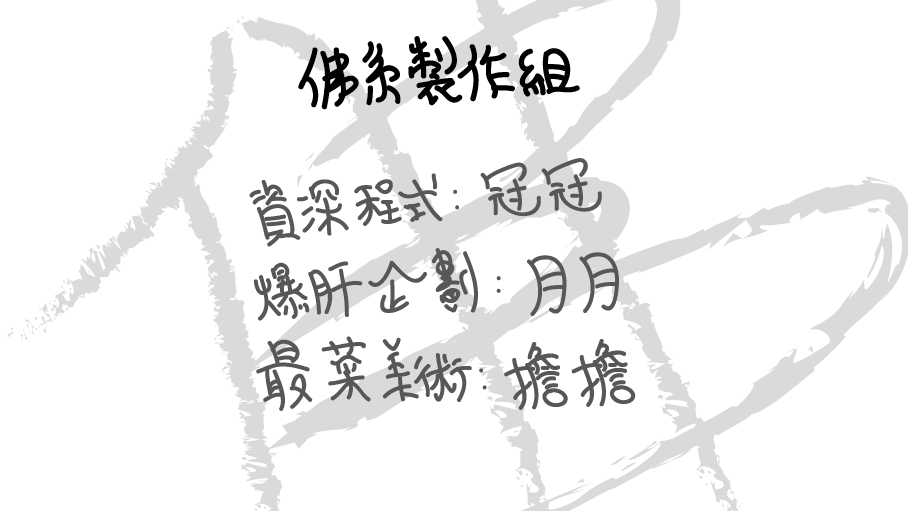 佛系製作組
資深程式:冠冠
爆肝企劃:月月
最菜美術:擔擔
佛